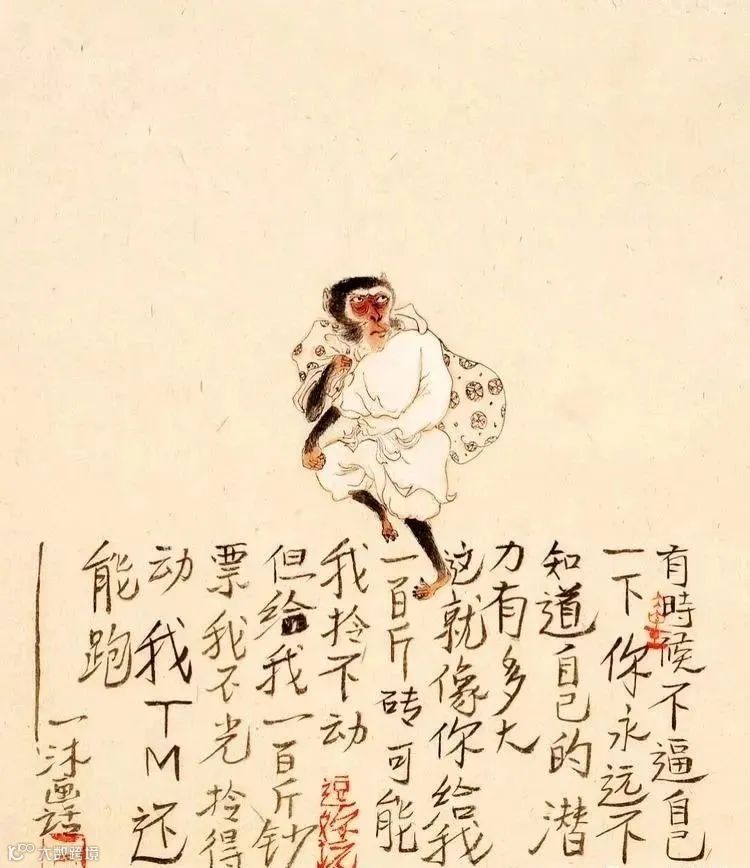 有時候不逼自己
一下你永远不
知道自己的潜
力有多大
这就像你给我
一百斤砖可能
我拎不动
但给我一百斤钞
票我不光拎得
动我TM还
能跑
一沐画话
大数跨境